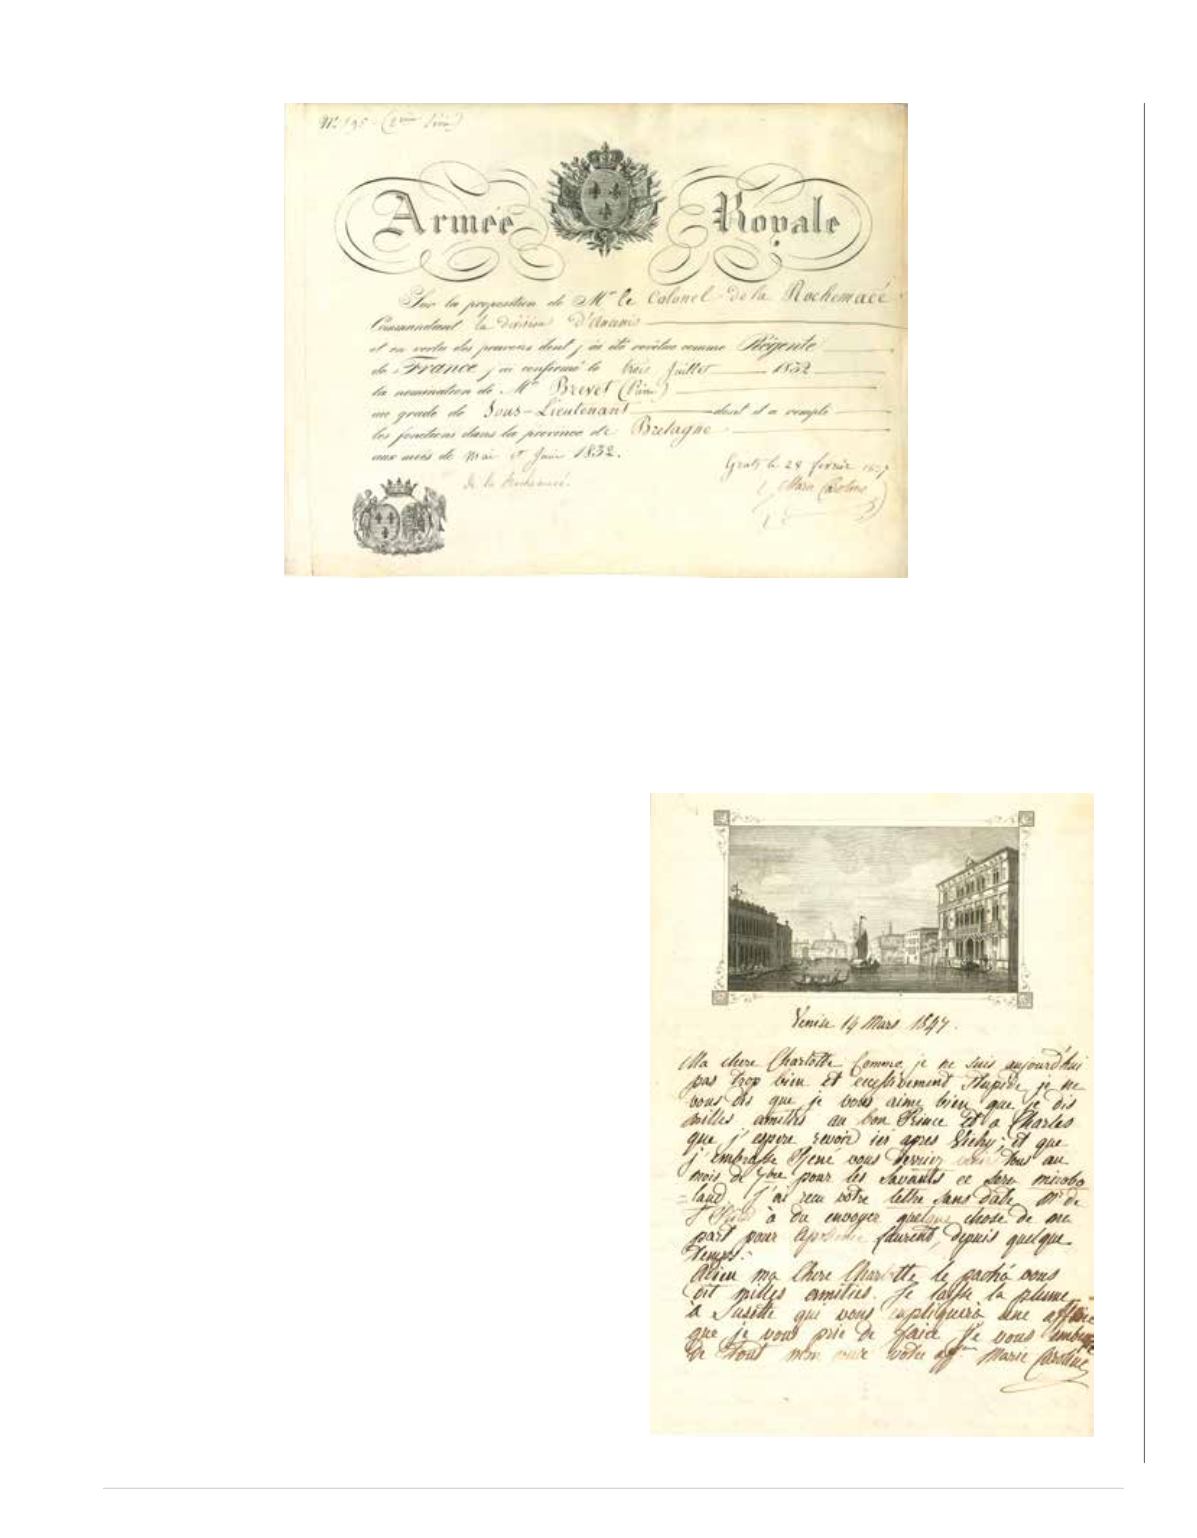 Armée Royale
Sur la proposition de Mr le Colonel de la Rochemacé
Commandant la division d'Ancenis
et en vertu des pouvoirs dont j'ai été revêtue comme Régente
de France j'ai confirmé le trois Juillet 1832
la nomination de Mr Brevet (Pierre)
au grade de Sous-Lieutenant dont il a rempli
les fonctions dans la province de Bretagne
aux mois de Mai et Juin 1832.
Gratz le 28 février 1837
de la Rochemacé.
Marie Caroline
Venise 14 Mars 1847.
Ma chere Charlotte Comme je ne suis aujourd'hui
pas trop bien et excessivement stupide je ne
vous dis que je vous aime bien que je dis
milles amitiés au bon Prince et a Charles
que j'espere revoir ici apres Vichy; et que
j'embrasse René vous devriez venir tous au
mois de 7bre pour les Savants ce sera mirobo
=land. J'ai recu votre lettre sans date Mr de
à du envoyer quelque chose de ma
part pour Laurent, depuis quelque
temps.
Adieu ma Chere Charlotte le pacha vous
dit milles amitiés. Je laisse la plume
à qui vous expliquera une affaire
que je vous prie de faire Je vous embrasse
de tout mon cœur votre affnée Marie Caroline